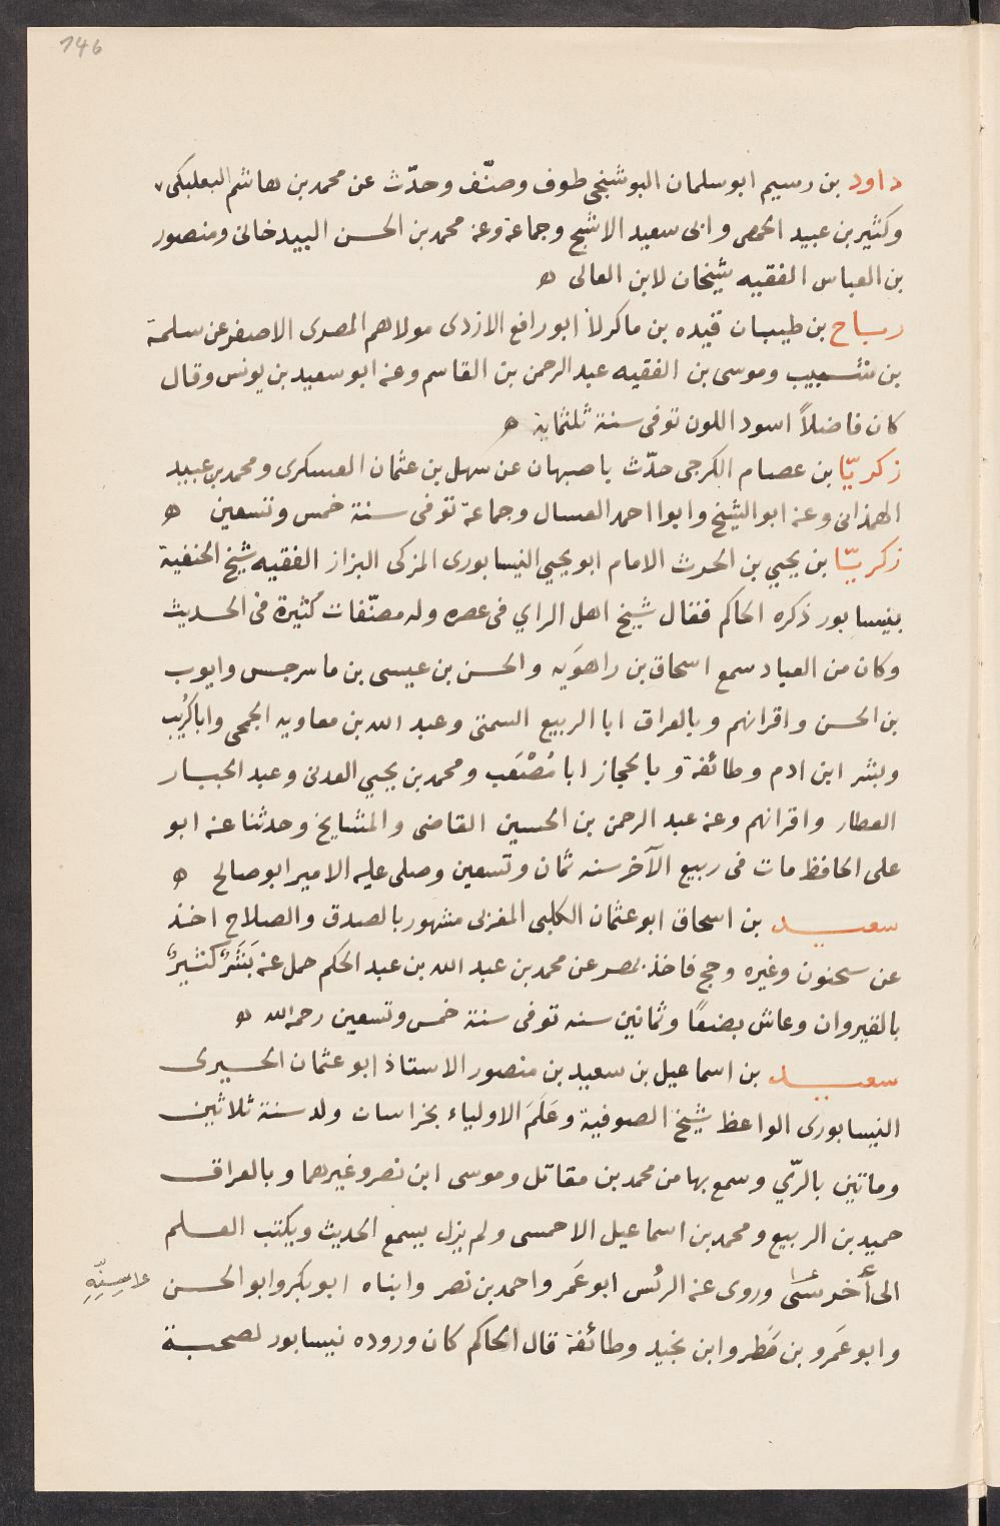 146
داود بن رسيم ابو سلمان البوشنجى طوف وصنّف وحدّث عن محمد بن هاشم البعلبكى
وكثير بن عبيد الحمصى وابى سعيد الاشج وجماعة وعنه محمد بن الحسن البيدخانى ومنصور
بن العباس الفقيه شيخان لابن العالى ه
رباح بن طيبان قيده بن ماكولا ابو رافع الازدى مولاهم المصرى الاصفر عن سلمة
بن شبيب وموسى بن الفقيه عبد الرحمن بن القاسم وعنه ابو سعيد بن يونس وقال
كان فاضلاً اسود اللون توفى سنة ثلثماية ه
زكريّا بن عصام الكرجى حدّث باصبهان عن سهل بن عثمان العسكرى ومحمد بن عبيد
الهمذانى وعنه ابو الشيخ وابوا احمد العسال وجماعة توفى سنة خمس وتسعين ه
زكريّا بن يحيى بن الحرث الامام ابو يحيى النيسابورى المزكى البزاز الفقيه شيخ الحنفية
بنيسابور ذكره الحاكم فقال شيخ اهل الراي فى عصره وله مصنّفات كثيرة فى الحديث
وكان من العباد سمع اسحاق بن راهوَيه والحسن بن عيسى بن ماسرجس وايوب
بن الحسن واقرانهم وبالعراق ابا الربيع السمتى وعبد الله بن معاويه الجمحى وابا كرُيب
وبشر ابن ادم وطائفة وبالحجاز ابا مُصْعَب ومحمد بن يحيى العدنى وعبد الجبار
العطار واقرانهم وعنه عبد الرحمن بن الحسين القاضى والمشايخ وحدثنا عنه ابو
على الحافظ مات فى ربيع الآخر سنه ثمان وتسعين وصلى عليه الامير ابو صالح ه
سعيد بن اسحاق ابو عثمان الكلبى المغربى مشهور بالصدق والصلاح اخذ
عن سحنون وغيره وحج فاخذ بمصر عن محمد بن عبد الله بن عبد الحكم حمل عنه بَشَرٌ كثيرٌ
بالقيروان وعاش بضعًا وثمانين سنه توفى سنة خمس وتسعين رحمه الله ه
سعيد بن اسماعيل بن سعيد بن منصور الاستاذ ابو عثمان الحيرى
النيسابورى الواعظ شيخ الصوفية وعَلَمَ الاولياء بخراسان ولد سنة ثلاثين
وماتين بالرّي وسمع بها من محمد بن مقاتل وموسى ابن نصر وغيرهما وبالعراق
حميد بن الربيع ومحمد بن اسماعيل الاحمسى ولم يزل يسمع الحديث ويكتب العلم
الى أخر شى وروى عنه الرئس ابو عَمر واحمد بن نصر وابناه ابو بكر وابو الحسن
وابو عَمرو بن مَطر وابن نجيد وطائفة قال الحاكم كان وروده نيسابور لصحبة